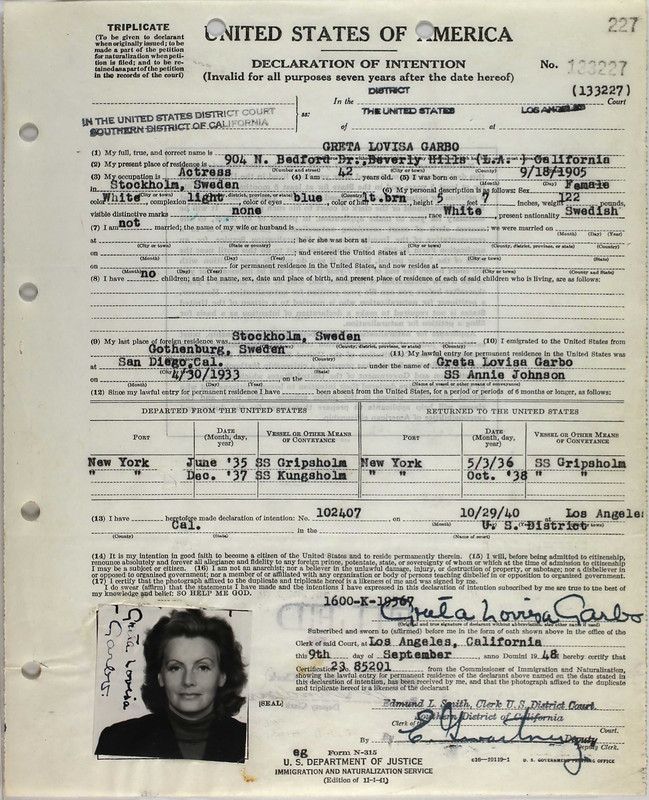 227
TRIPLICATE
(To be given to declarant
when originally issued; to be
made a part of the petition
for naturalization when peti-
tion is filed; and to be re-
tained as a part of the petition
in the records of the court)
UNITED STATES OF AMERICA
DECLARATION OF INTENTION
(Invalid for all purposes seven years after the date hereof)
No. 133227
(133227)
DISTRICT
In the Court
IN THE UNITED STATES DISTRICT COURT
SOUTHERN DISTRICT OF CALIFORNIA
ss:
of THE UNITED STATES at LOS ANGELES
(1) My full, true, and correct name is GRETA LOVISA GARBO
(2) My present place of residence is 904 N. Bedford Dr., Beverly Hills (L.A.) California
(Number and street) (City or town) (County) (State)
(3) My occupation is Actress (4) I am 42 years old. (5) I was born on 9/18/1905
(Month) (Day) (Year)
in Stockholm, Sweden (6) My personal description is as follows: Sex Female
color White, complexion light, color of eyes blue, color of hair lt.brn, height 5 feet 7 inches, weight 122 pounds,
visible distinctive marks none race White, present nationality Swedish
(7) I am not married; the name of my wife or husband is ; we were married on
(Month) (Day) (Year)
at ; he or she was born at
(City or town) (State or country) (City or town) (County, district, province, or state) (Country)
on ; and entered the United States at
(Month) (Day) (Year) (City or town) (State)
on for permanent residence in the United States, and now resides at
(Month) (Day) (Year) (City or town) (County and State)
(8) I have no children; and the name, sex, date and place of birth, and present place of residence of each of said children who is living, are as follows:
(9) My last place of foreign residence was Stockholm, Sweden (10) I emigrated to the United States from
(County, district, province, or state) (Country)
Gothenburg, Sweden (11) My lawful entry for permanent residence in the United States was
(Country)
at San Diego, Cal. under the name of Greta Lovisa Garbo
(City) (State)
on 4/30/1933 on the SS Annie Johnson
(Month) (Day) (Year) (Name of vessel or other means of conveyance)
(12) Since my lawful entry for permanent residence I have been absent from the United States, for a period or periods of 6 months or longer, as follows:
DEPARTED FROM THE UNITED STATES RETURNED TO THE UNITED STATES
PORT DATE (Month, day, year) VESSEL OR OTHER MEANS OF CONVEYANCE PORT DATE (Month, day, year) VESSEL OR OTHER MEANS OF CONVEYANCE
New York June '35 SS Gripsholm New York 5/3/36 SS Gripsholm
" " Dec. '37 SS Kungsholm " " Oct. '38 " "
(13) I have heretofore made declaration of intention: No. 102407, on 10/29/40 at Los Angeles
(Month) (Day) (Year) (City or town)
Cal. in the U. S. District
(County) (State) (Name of court)
(14) It is my intention in good faith to become a citizen of the United States and to reside permanently therein. (15) I will, before being admitted to citizenship,
renounce absolutely and forever all allegiance and fidelity to any foreign prince, potentate, state, or sovereignty of whom or which at the time of admission to citizenship
I may be a subject or citizen. (16) I am not an anarchist; nor a believer in the unlawful damage, injury, or destruction of property, or sabotage; nor a disbeliever in
or opposed to organized government; nor a member of or affiliated with any organization or body of persons teaching disbelief in or opposition to organized government.
(17) I certify that the photograph affixed to the duplicate and triplicate hereof is a likeness of me and was signed by me.
I do swear (affirm) that the statements I have made and the intentions I have expressed in this declaration of intention subscribed by me are true to the best of
my knowledge and belief: SO HELP ME GOD.
1600-K-19567
Greta Lovisa Garbo
(Original and true signature of declarant without abbreviation, also alias, if used)
Subscribed and sworn to (affirmed) before me in the form of oath shown above in the office of the
Clerk of said Court, at Los Angeles, California
this 9th day of September, anno Domini 19 48 hereby certify that
Certification No. 23 85201 from the Commissioner of Immigration and Naturalization,
showing the lawful entry for permanent residence of the declarant above named on the date stated in
this declaration of intention, has been received by me, and that the photograph affixed to the duplicate
and triplicate hereof is a likeness of the declarant
Greta Lovisa
Garbo.
[SEAL]
Edmund L. Smith, Clerk U.S. District Court
Southern District of California
Clerk of the Court.
By Deputy
Deputy Clerk.
eg
Form N-315
U. S. DEPARTMENT OF JUSTICE
IMMIGRATION AND NATURALIZATION SERVICE
(Edition of 11-1-41)
c16—20119-1 U. S. GOVERNMENT PRINTING OFFICE